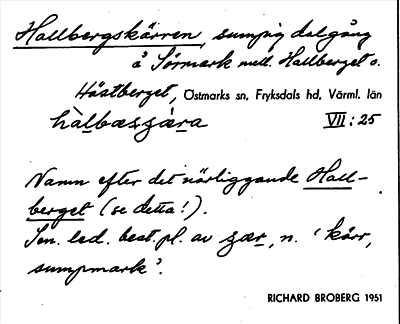 Hallbergskärren, sumpig dalgång
å Sörmark mell. Hallberget o.
Höstberget, Östmarks sn, Fryksdals hd, Värml. län
hàlbæsʒæ̀ra VII:25
Namn efter det närliggande Hall-
berget (se detta!).
Sen. led. best. pl. av ʒær, n. 'kärr,
sumpmark'.
RICHARD BROBERG 1951